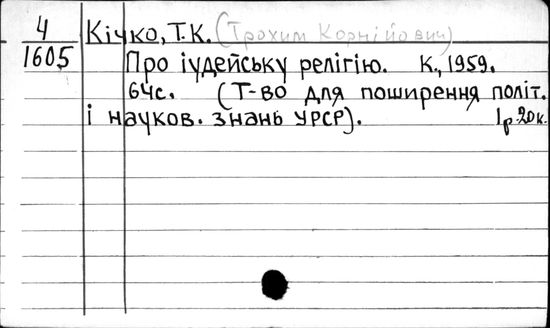 4
1605
Кічко, Т.К. (Трохим Корнійович)
Про іудейську релігію. К., 1959.
64с. (Т-во для поширення політ.
і науков. знань УРСР). 1р 20к.